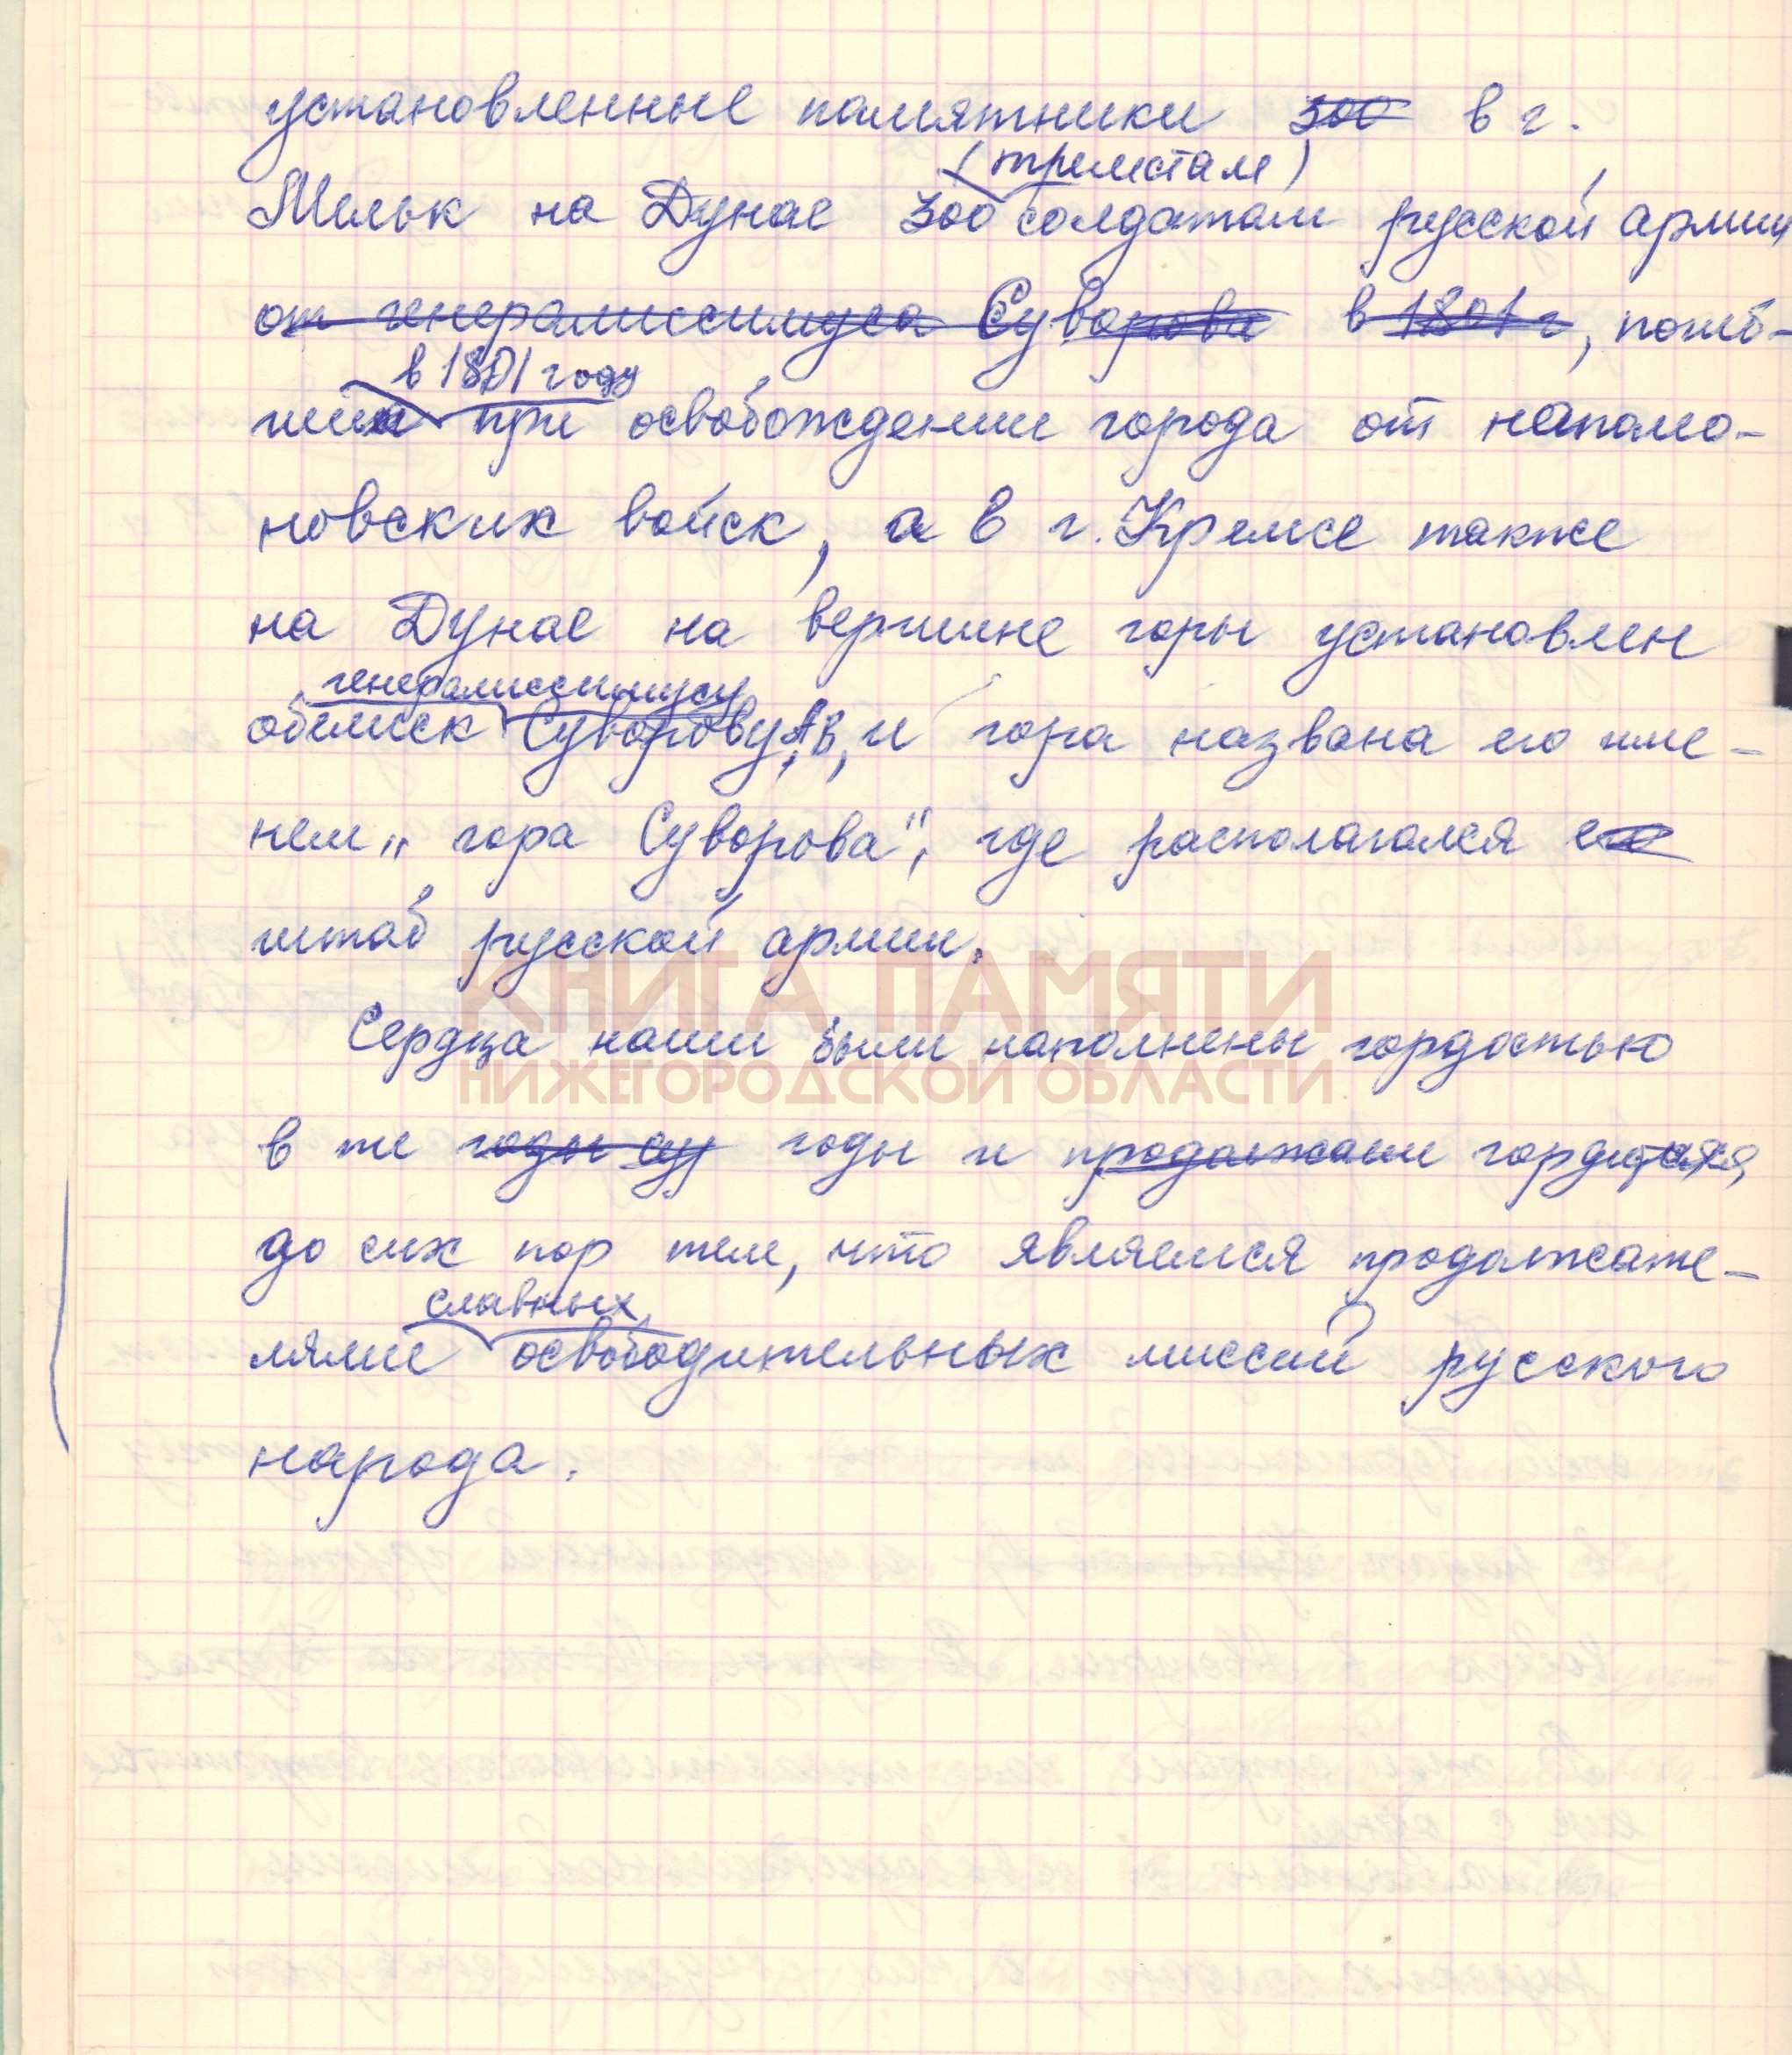 установленные памятники 300 в г.
(тремстам)
Мельк на Дунае 300 солдатам русской армии,
от генералиссимуса Суворова в 1801 г, погиб-
в 1801 году
ших при освобождении города от напалео-
новских войск, а в г. Кремсе также
на Дунае на вершине горы установлен
генералиссимусу
обелиск Суворову А.В, и гора названа его име-
нем „гора Суворова", где располагался его
штаб русской армии.
КНИГА ПАМЯТИ
Сердца наши были наполнены гордостью
НИЖЕГОРОДСКОЙ ОБЛАСТИ
в те годы су годы и продолжаем
до сих пор тем, что являемся продолжате-
славных
лями освободительных миссий русского
народа.